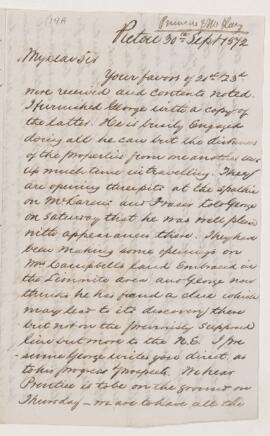 Primrose & McKay
Pictou 30th Sept 1872
My dear Sir
Your favors of 21st & 23d
were received and contents noted.
I furnished George with a copy of
the latter. He is busily Engaged
doing all he can but the distances
of the properties from one another use
up much time in travelling. They
are opening three pits at the Spathic
on McLaren's and Fraser told George
on Saturday that he was well pleased
with appearances there. They had
been making some openings on
Mrs Campbells land Embraced in
the Limonite area and George now
thinks he has found a clue which
may lead to its discovery there
but not on the previously supposed
line but more to the N.E. I pre-
sume George writes you direct as
to his progress & prospects. We hear
Prentice is to be on the ground on
Thursday — we are to have all the